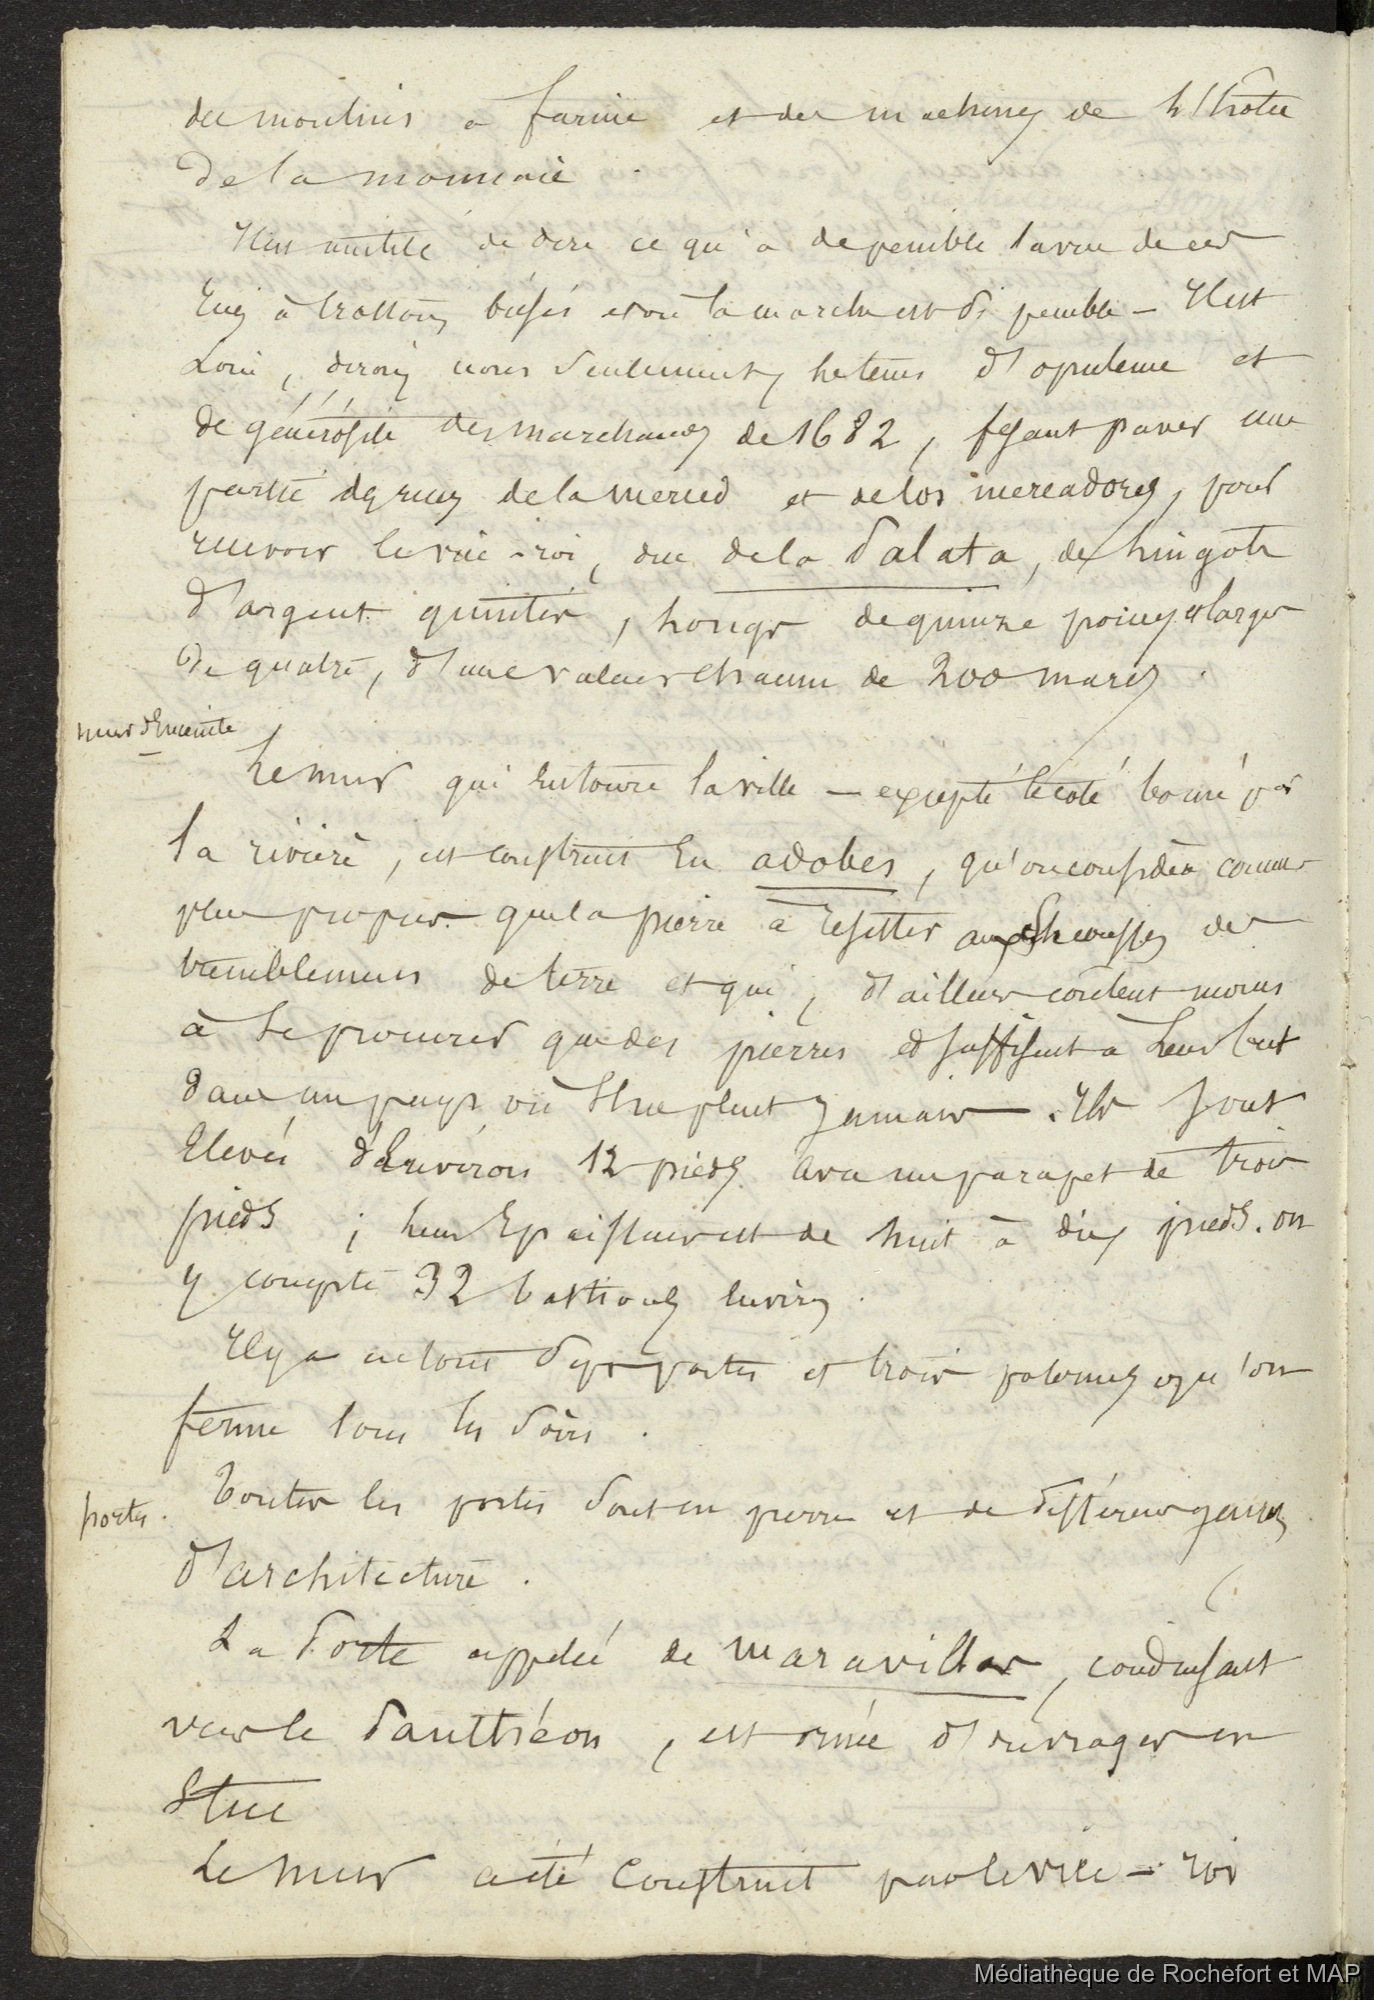 des moulins a farine et des machines de l'hotel
de la monnaie.
Il est inutile de dire ce qu'a de penible la vue de ces
rues à trottoirs brisés et où la marche est si penible - Il est
Loin, dirons nous seulement, le tems d'opulence et
de générosité des marchands de 1682, fesant paver une
partie des rues de la merced et de los mercadores, pour
recevoir le vice-roi, duc de la Palata, de lingots
d'argent quintés, longs de quinze pouces et larges
de quatre, d'une valeur chacun de 200 marcs.
mur d'Enceinte
Le mur qui entoure la ville - excepté le coté borné par
la riviere, est construit En adobes, qu'on considère comme
plus propres que la pierre à résister aux secousses des
tremblemens de terre et qui, d'ailleurs coutent moins
à se procurer que des pierres et suffisent à leur but
dans un pays où il ne pleut jamais. Ils sont
Elevés d'Environ 12 pieds avec un parapet de trois
pieds ; leur Epaisseur est de huit à dix pieds. on
y compte 32 bastions Environ.
Il y a en tout sept portes et trois poternes qu'on
ferme tous les soirs.
portes.
Toutes les portes sont en pierre et de différens genres
d'architecture.
La Porte appelée de maravillas, conduisant
vers le Panthéon, est ornée d'ouvrages en
Stuc
Le mur a été construit par le vice-roi
Médiathèque de Rochefort et MAP